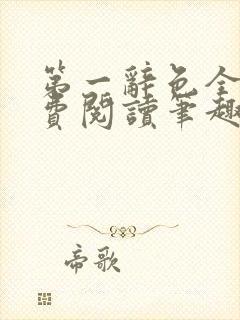 第一辭色全
費閱讀筆趣
帝歌